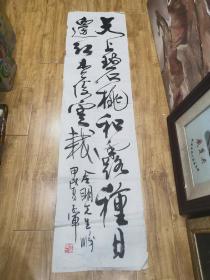 天上碧桃和露種日
邊紅杏倚雲栽
甲戌夏